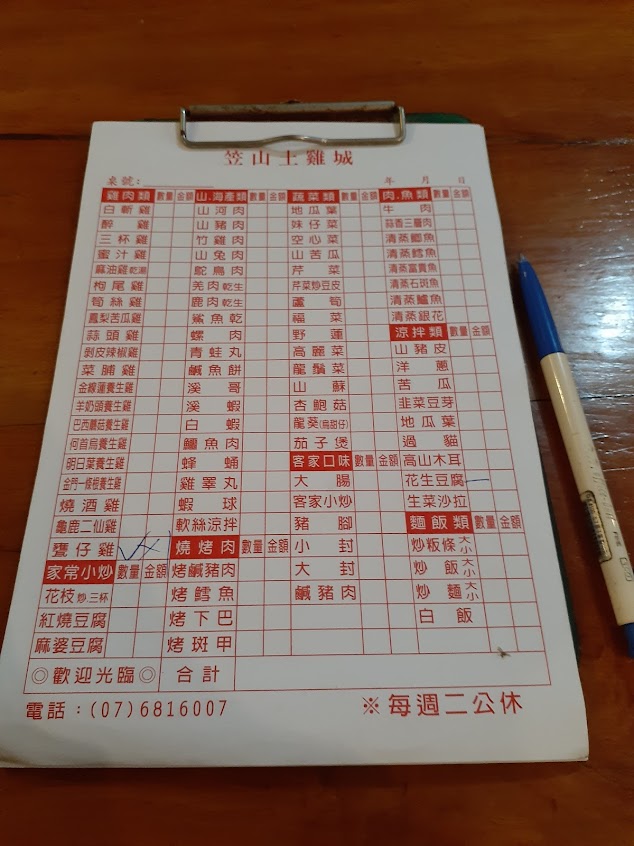 笠山土雞城
桌號: 年 月 日
雞肉類 數量 金額 山.海產類 數量 金額 蔬菜類 數量 金額 肉.魚類 數量 金額
白斬雞 山河肉 地瓜葉 牛肉
醉雞 山豬肉 妹仔菜 蒜香三層肉
三杯雞 竹雞肉 空心菜 清蒸鯽魚
蜜汁雞 山兔肉 山苦瓜 清蒸鱈魚
麻油雞乾湯 鴕鳥肉 芹菜 清蒸富貴魚
枸尾雞 羌肉乾生 芹菜炒豆皮 清蒸石斑魚
筍絲雞 鹿肉乾生 蘆筍 清蒸鱸魚
鳳梨苦瓜雞 鯊魚乾 福菜 清蒸銀花
蒜頭雞 螺肉 野蓮 涼拌類 數量 金額
剝皮辣椒雞 青蛙丸 高麗菜 山豬皮
菜脯雞 鹹魚餅 龍鬚菜 洋蔥
金線蓮養生雞 溪哥 山蘇 苦瓜
羊奶頭養生雞 溪蝦 杏鮑菇 韭菜豆芽
巴西蘑菇養生雞 白蝦 龍葵(烏甜仔) 地瓜葉
何首烏養生雞 鱷魚肉 茄子煲 過貓
明日葉養生雞 蜂蛹 客家口味 數量 金額 高山木耳
金門一條根養生雞 雞睪丸 大腸 花生豆腐
燒酒雞 蝦球 客家小炒 生菜沙拉
龜鹿二仙雞 軟絲涼拌 豬腳 麵飯類 數量 金額
甕仔雞 燒烤肉 數量 金額 小封 炒粄條大小
家常小炒 數量 金額 烤鹹豬肉 大封 炒飯大小
花枝炒.三杯 烤鱈魚 鹹豬肉 炒麵大小
紅燒豆腐 烤下巴 白飯
麻婆豆腐 烤斑甲
◎歡迎光臨◎ 合計
電話:(07)6816007 ※每週二公休